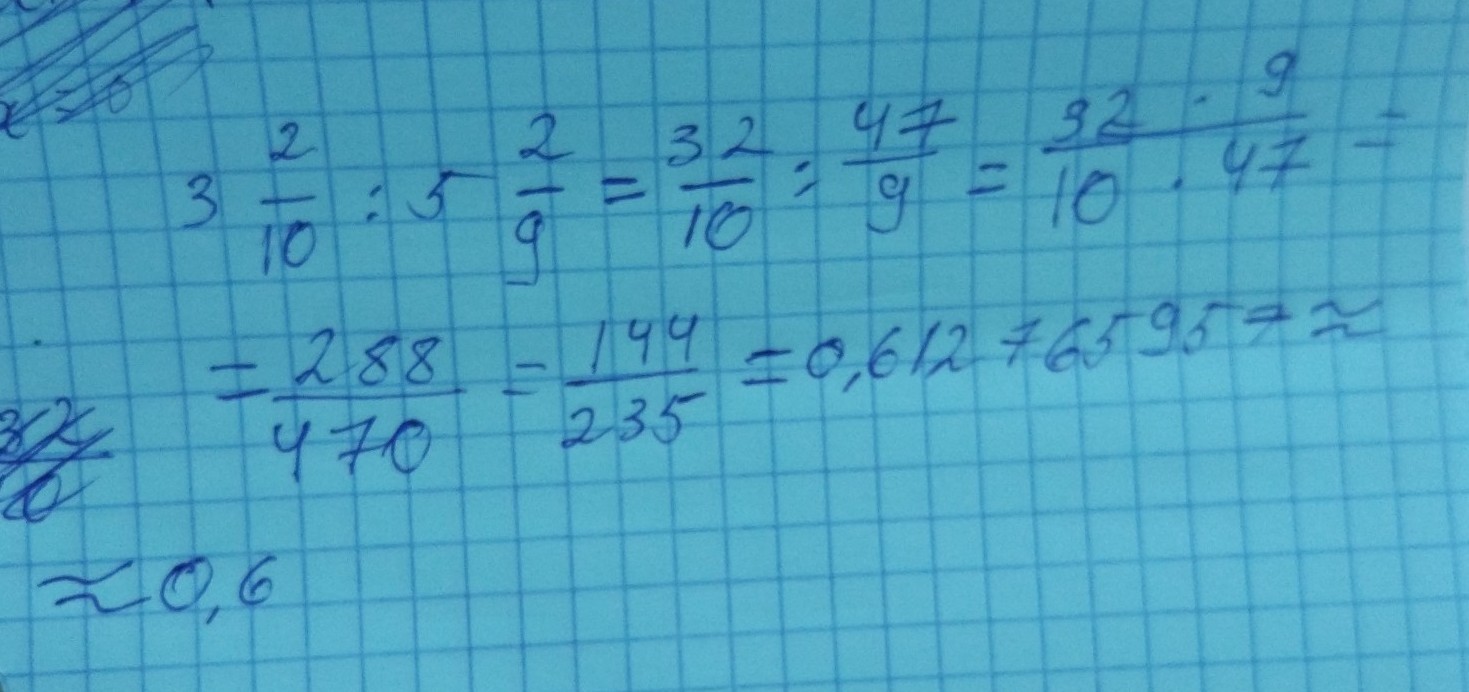 3 2/10 : 5 2/9 = 32/10 : 47/9 = 32 · 9/10 · 47 =
= 288/470 = 144/235 = 0,612765957 ≈
≈ 0,6